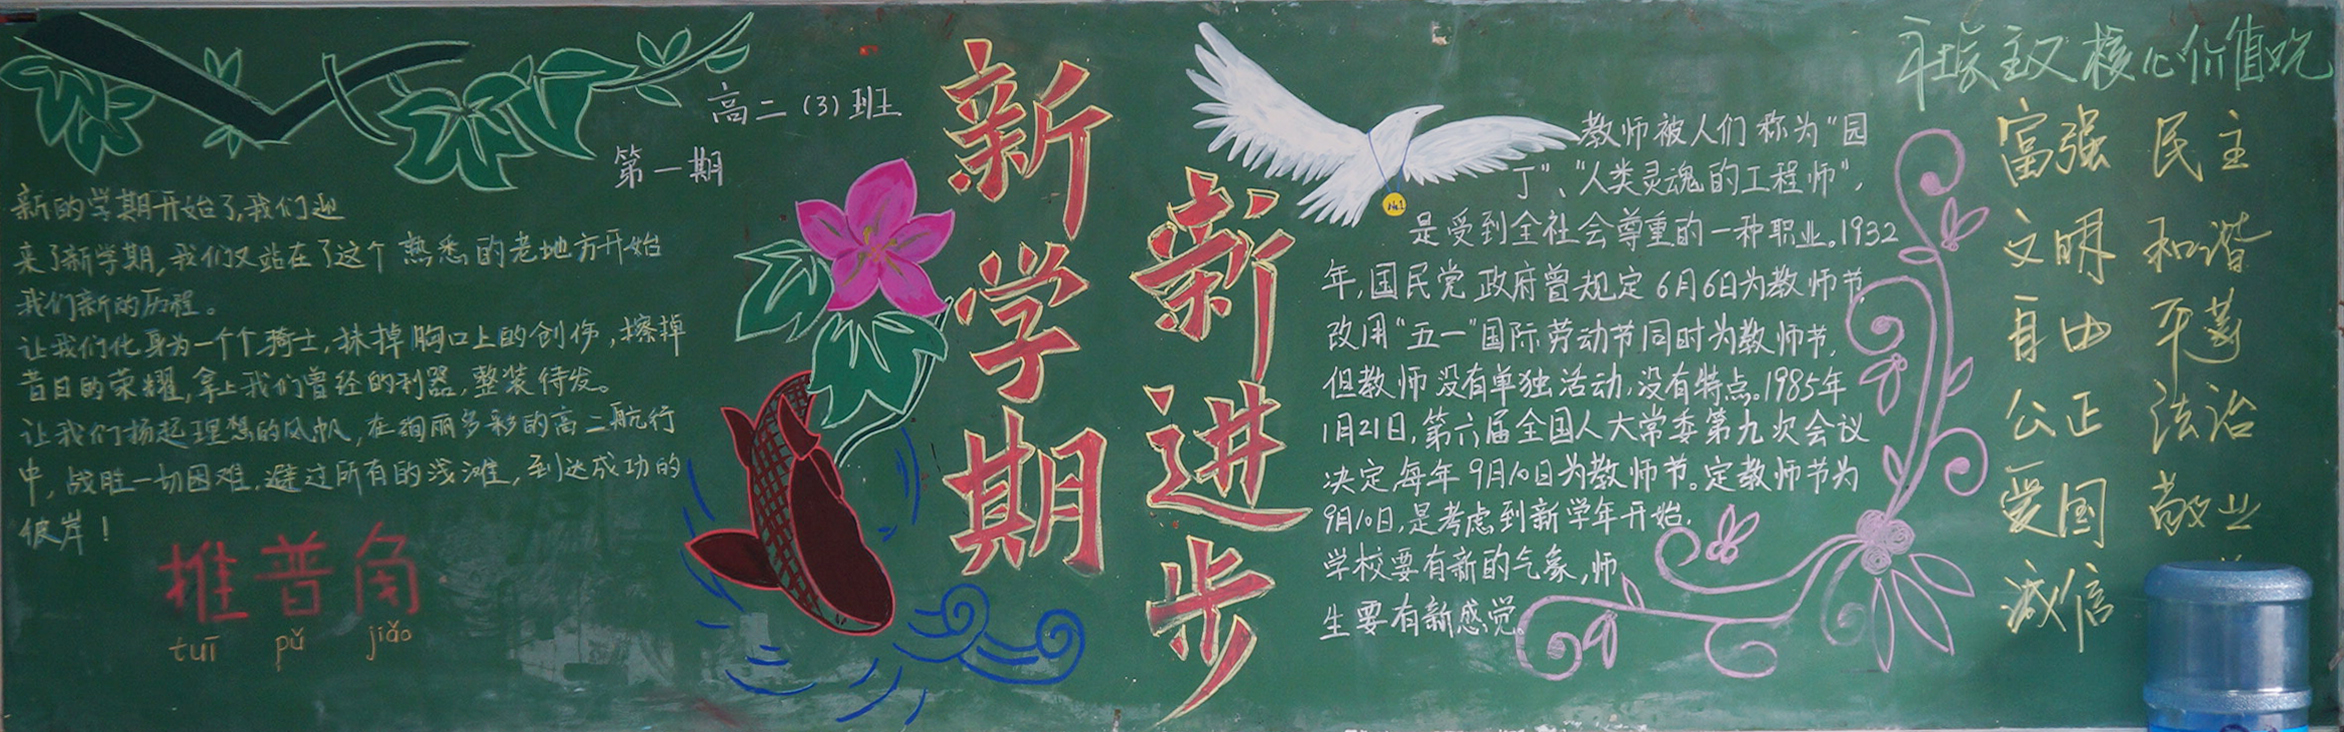 高二（3）班
第一期
新的学期开始了,我们迎
来了新学期,我们又站在了这个熟悉的老地方开始
我们新的历程。
让我们化身为一个个骑士,抹掉胸口上的创伤,擦掉
昔日的荣耀,拿上我们曾经的利器,整装待发。
让我们扬起理想的风帆,在绚丽多彩的高二航行
中,战胜一切困难,避过所有的浅滩,到达成功的
彼岸！
推普角
tuī pǔ jiǎo
新学期
新进步
No.1
教师被人们称为“园
丁”、“人类灵魂的工程师”,
是受到全社会尊重的一种职业。1932
年,国民党政府曾规定6月6日为教师节,
改用“五一”国际劳动节同时为教师节,
但教师没有单独活动,没有特点。1985年
1月21日,第六届全国人大常委第九次会议
决定,每年9月10日为教师节。定教师节为
9月10日,是考虑到新学年开始,
学校要有新的气象,师
生要有新感觉。
社会主义核心价值观
富强 民主
文明 和谐
自由 平等
公正 法治
爱国 敬业
诚信